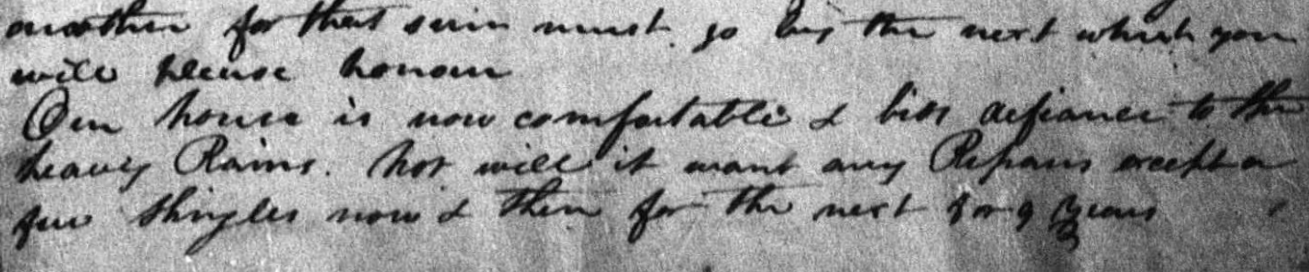 another for that sum must go by the next which you
will please honour
Our house is now comfortable & bids defiance to the
heavy Rains. Nor will it want any Repairs except a
few Shingles now & then for the next 8 or 9 Years